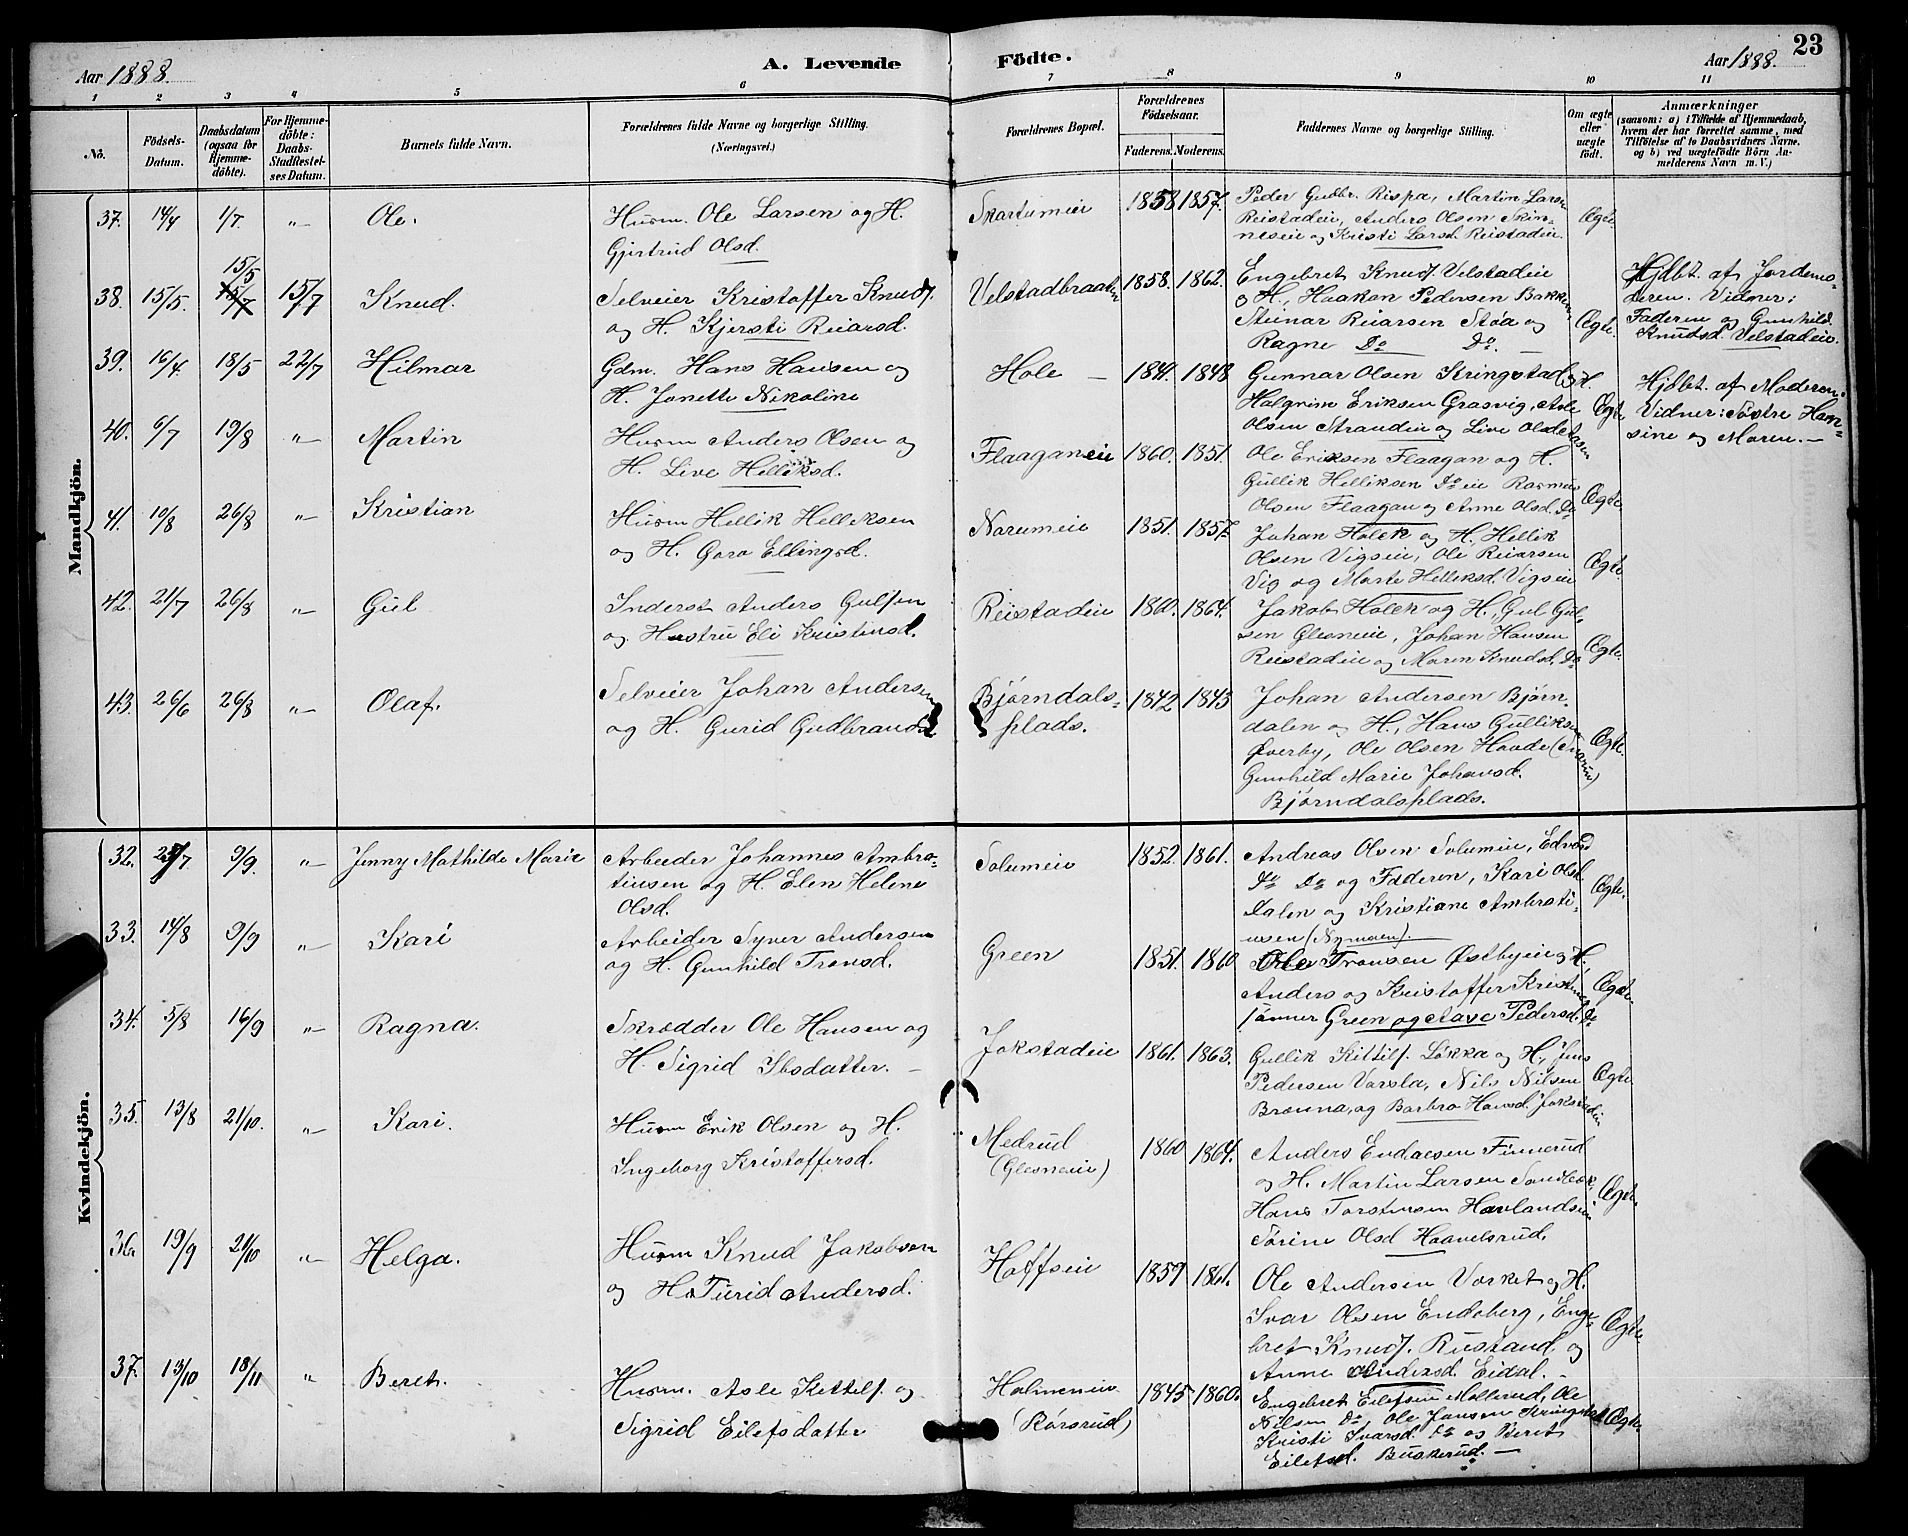 23
Aar 1888. A. Levende Födte. Aar 1888.
1 2 3 4 5 6 7 8 9 10 11
No. Födsels-Datum. Daabsdatum (ogsaa for Hjemmedöbte). For Hjemmedöbte: Daabs-Stadfæstelses Datum. Barnets fulde Navn. Forældrenes fulde Navne og borgerlige Stilling. (Næringsvei.) Forældrenes Bopæl. Forældrenes Födselsaar. Faderens. Moderens. Faddernes Navne og borgerlige Stilling. Om ægte eller uægte födt. Anmærkninger (saasom: a) i Tilfælde af Hjemmedaab, hvem der har forrettet samme, med Tilföielse af to Daabsvidners Navne, og b) ved uægtefödte Börn Anmelderens Navn m. V.)
Mandkjön.
37. 14/4 1/7. " Ole. Husm. Ole Larsen og H. Gjertrud Olsd. Skartumeie 1858 1857. Peder Gudbr. Rispa, Martin Larsen Reistadeie, Anders Olsen Skinneseie og Kristi Larsd. Reistadeie. Ægte.
38. 15/5. 15/5 15/7 15/7 Knud. Selveier Kristoffer Knuds. og H. Kjersti Reiarsd. Velstadbraaten 1858. 1862. Engebret Knuds. Velstadeie og H., Haakon Pedersen Bakken, Steinar Reiarsen Støa og Ragne Do Do. Ægte. Hjdbt. af Jordemoderen. Vidner: Faderen og Gunhild Knudsd. Velstadeie.
39. 16/4. 18/5 22/7 Hilmar Gdm. Hans Hansen og H. Janette Nikoline Hole 1841. 1848 Gunnar Olsen Kringstad og H. Halgrim Eriksen Grasvig, Asle Olsen Strandeie og Live Olsd. Ægte Hjdbt. af Moderen. Vidner: Søstre Hansine og Maren.
40. 6/7 19/8 " Martin Husm Anders Olsen og H. Live Helliksd. Flaaganeie 1860. 1851. Ole Eriksen Flaagan og H. Gullik Helliksen Do eie Rasmus Olsen Flaagan og Anne Olsd. Do Ægte
41. 10/8 26/8 " Kristian Husm Hellik Helleksen og H. Goro Ellingsd. Narumeie 1851. 1857. Johan Holek og H. Hellik Olsen Vigseie, Ole Reiarsen Vig og Marte Helliksd. Vigseie Ægte.
42. 21/7 26/8 " Gul Inderst Anders Gulsen og Hustru Eli Kristinsd. Reistadeie 1860. 1864. Jakob Holek og H., Gul Gulsen Glesneeie, Johan Hansen Reistadeie og Maren Knudsd. Do Ægte.
43. 26/6 26/8 " Olaf. Selveier Johan Andersen og H. Gurid Gudbrandsd. Bjørndalsplads. 1842 1843 Johan Andersen Bjørndalen og H., Hans Gulliksen Øverby, Ole Olsen Hovde (Narum) Gunhild Marie Johansd. Bjørndalsplads. Ægte.
Kvindekjön.
32. 9/9. " Jenny Mathilde Marie Arbeider Johannes Ambrotiusen og H. Elen Helene Olsd. Solumeie 1852. 1861. Andreas Olsen Solumeie, Edvard Do Do og Faderen, Kari Olsd. Dalen og Kristiane Ambrotiusen (Nymoen). Ægte.
33. 14/8 9/9 " Kari Arbeider Syver Andersen og H. Gunhild Tronsd. Green 1851. 1860 Ole Tronsen Østbyeie og H, Anders og Kristoffer sønner Green og Aave Pedersd. Do Ægte.
34. 5/8 16/9 " Ragna. Skrædder Ole Hansen og H. Sigrid Ibsdatter. Jokstadeie 1861. 1863. Gullik Kittils. Løkka og H., Jens Pedersen Varsla, Nils Nilsen Brænna, og Barbro Hansd. Jokstadeie Ægte.
35. 13/8 21/10. " Kari. Husm Erik Olsen og H. Ingeborg Kristoffersd. Medrud (Glesneeie) 1860 1864. Anders Endresen Finnerud og H. Martin Larsen Sandbæk, Hans Torstensen Havlandseie Sørine Olsd Haavelsrud. Ægte.
36. 19/9 21/10 " Helga. Husm Knud Jakobsen og H. Turid Andersd. Hoffseie 1859 1861. Ole Andersen Værket og H. Ivar Olsen Endeberg, Engebret Knuds. Rustand og Anne Andersd. Eidal. Ægte
37. 13/10 18/11 " Beret. Husm. Asle Kettels. og Sigrid Eilefsdatter Holmeneie (Rørsrud) 1845 1860. Engebret Eilefsen Mollerud, Ole Nilsen Do, Ole Jansen Kringstad Kristi Ivarsd. Do og Beret Eilefsd. Buskerud. Ægte.